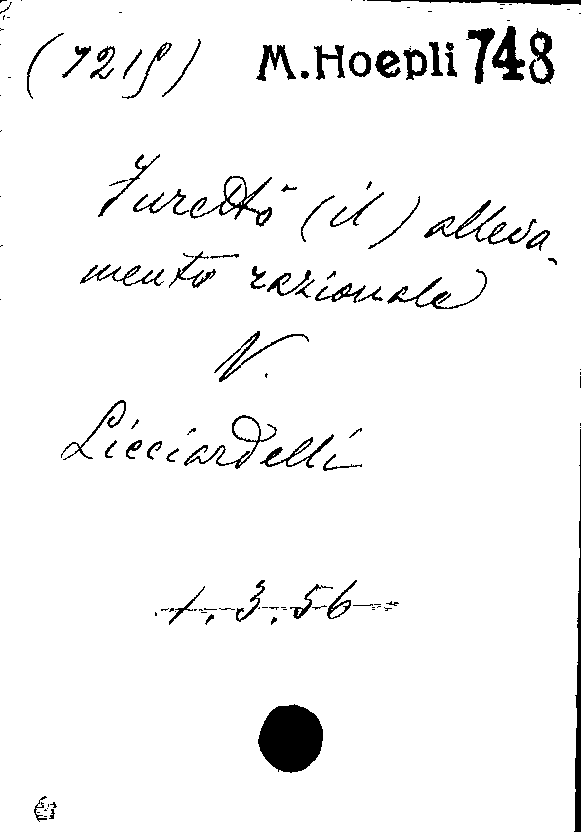 (7219) M.Hoepli 748
Furetto (il) alleva-
mento razionale
V.
Licciardelli
1.3.56